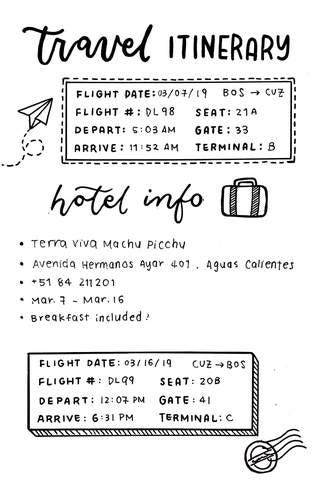 travel ITINERARY
FLIGHT DATE: 03/07/19 BOS → CUZ
FLIGHT #: DL98 SEAT: 21A
DEPART: 5:03 AM GATE: 33
ARRIVE: 11:52 AM TERMINAL: B
hotel info
• Terra Viva Machu Picchu
• Avenida Hermanos Ayar 401, Aguas Calientes
• +51 84 211201
• Mar. 7 - Mar. 16
• Breakfast included!
FLIGHT DATE: 03/16/19 CUZ → BOS
FLIGHT #: DL99 SEAT: 20B
DEPART: 12:07 PM GATE: 41
ARRIVE: 6:31 PM TERMINAL: C